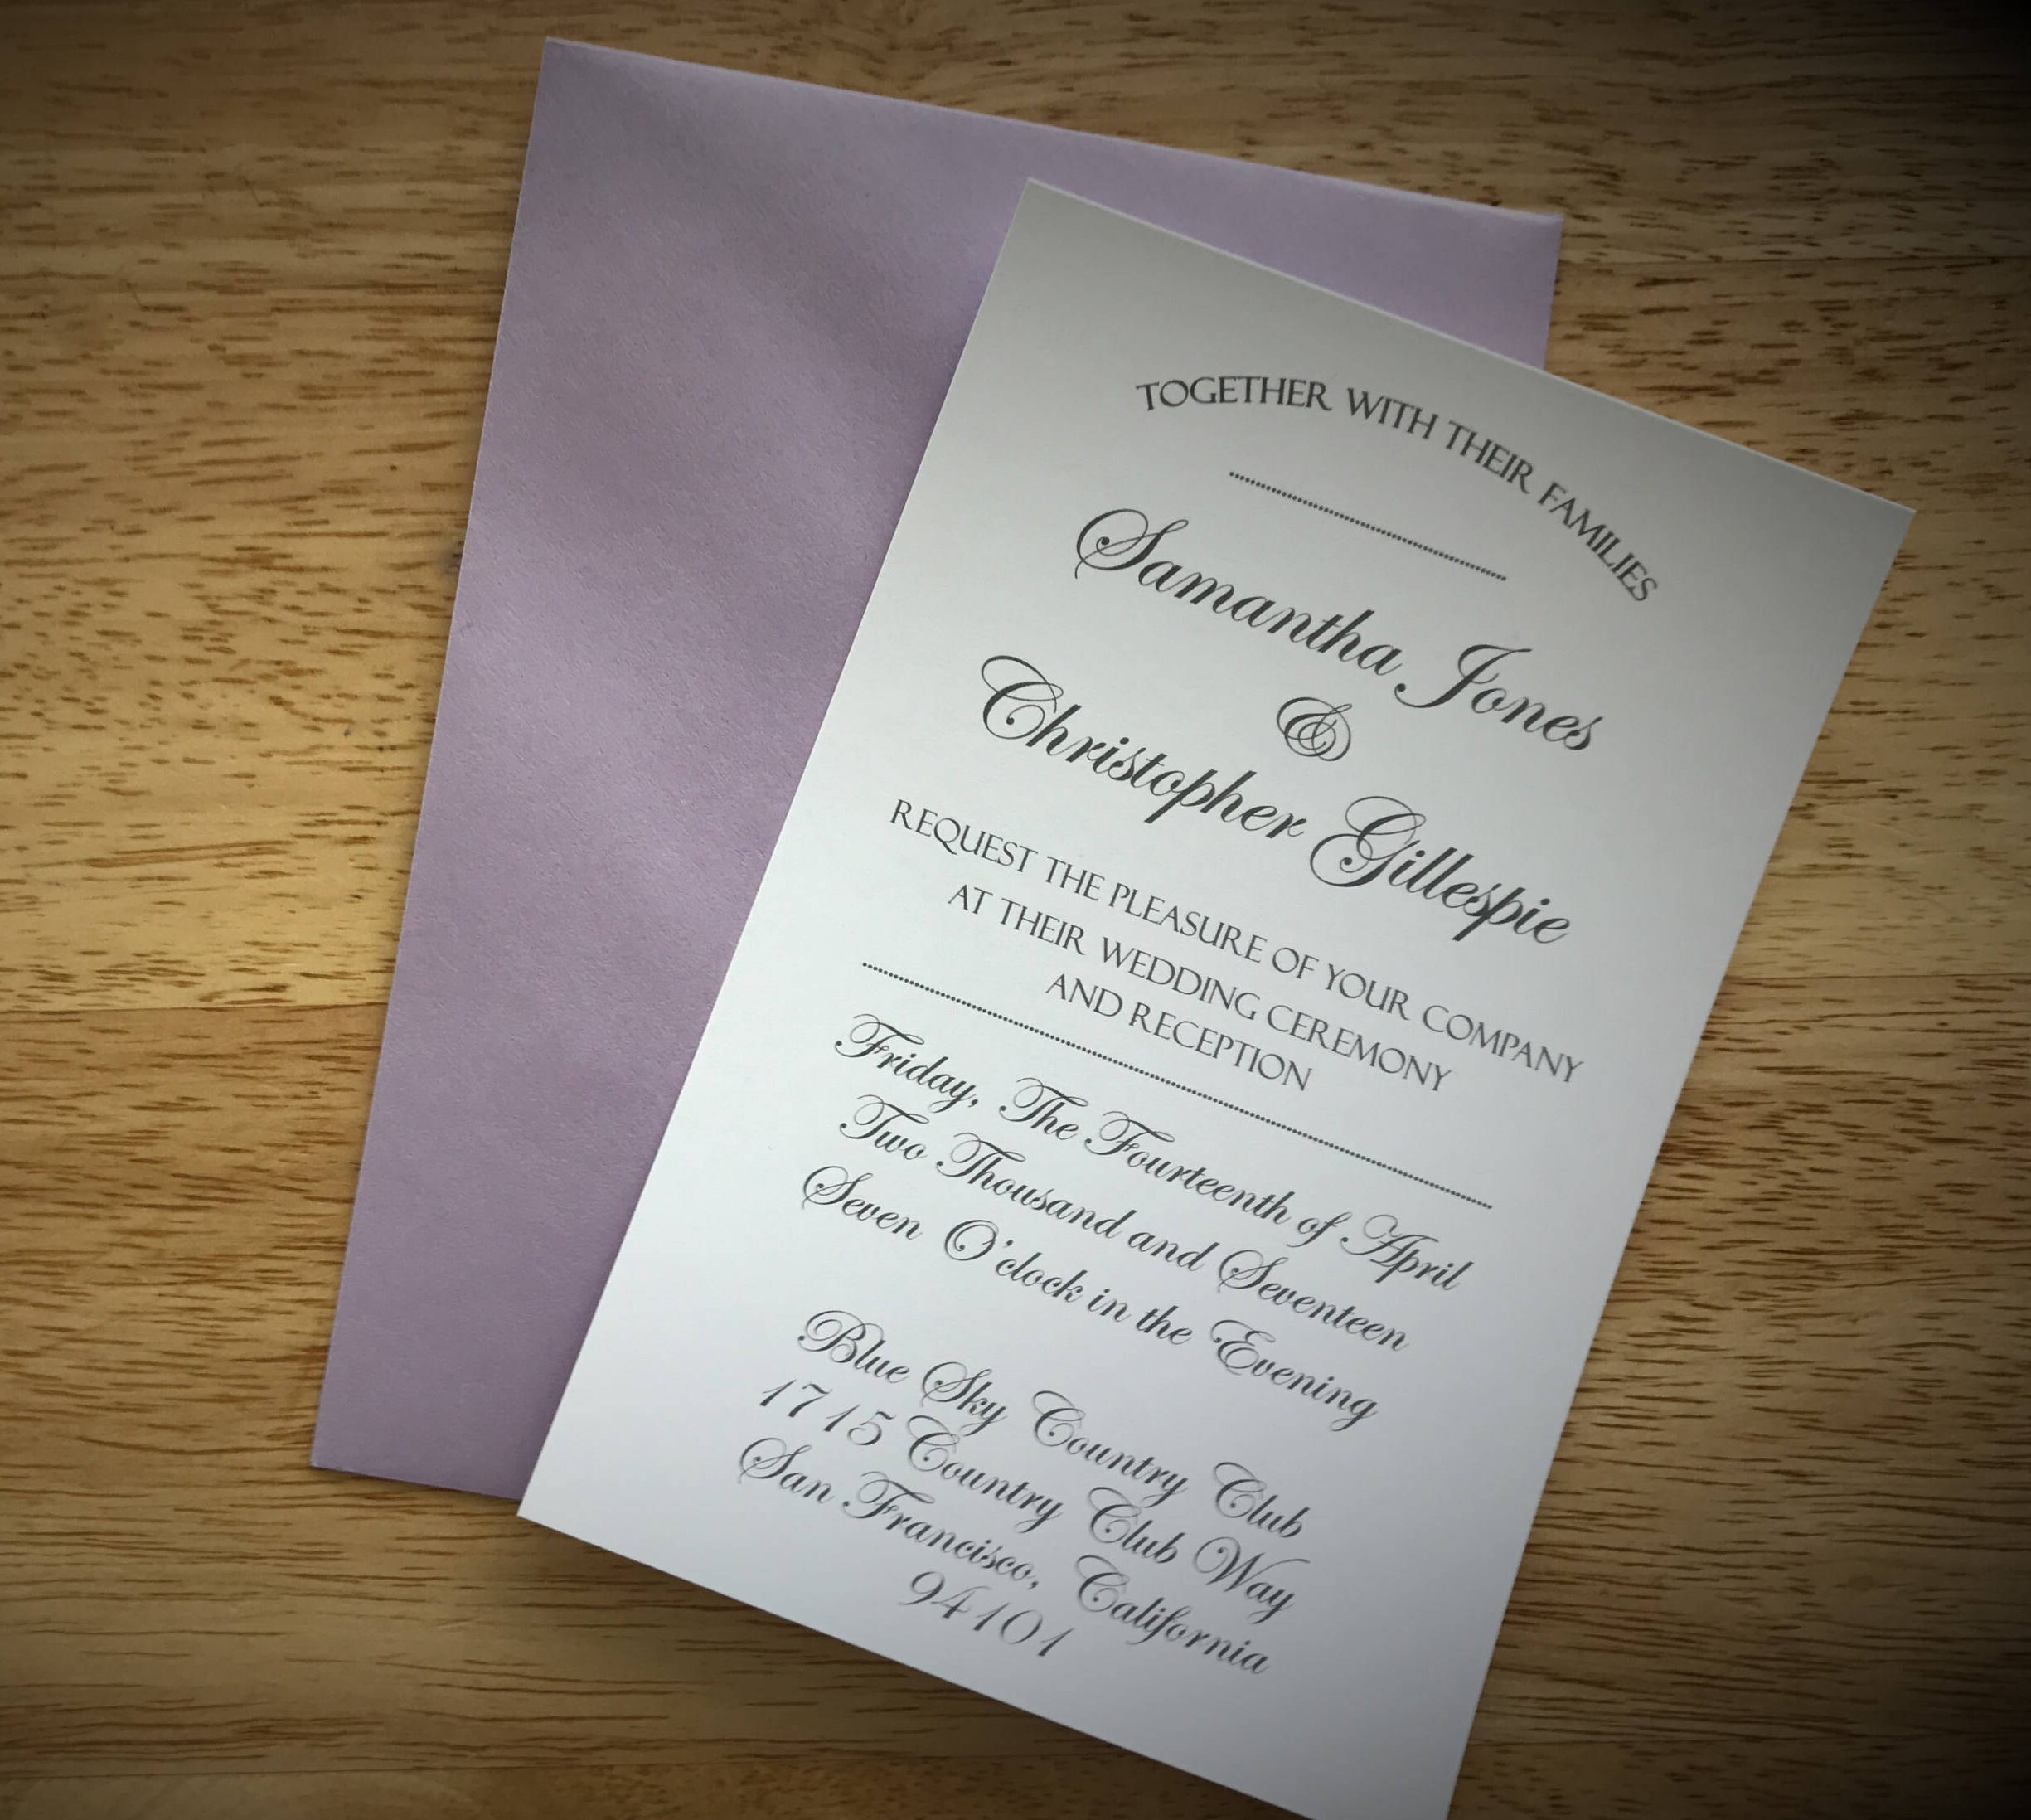 TOGETHER WITH THEIR FAMILIES
Samantha Jones
&
Christopher Gillespie
REQUEST THE PLEASURE OF YOUR COMPANY
AT THEIR WEDDING CEREMONY
AND RECEPTION
Friday, The Fourteenth of April
Two Thousand and Seventeen
Seven O'clock in the Evening
Blue Sky Country Club
1715 Country Club Way
San Francisco, California
94101